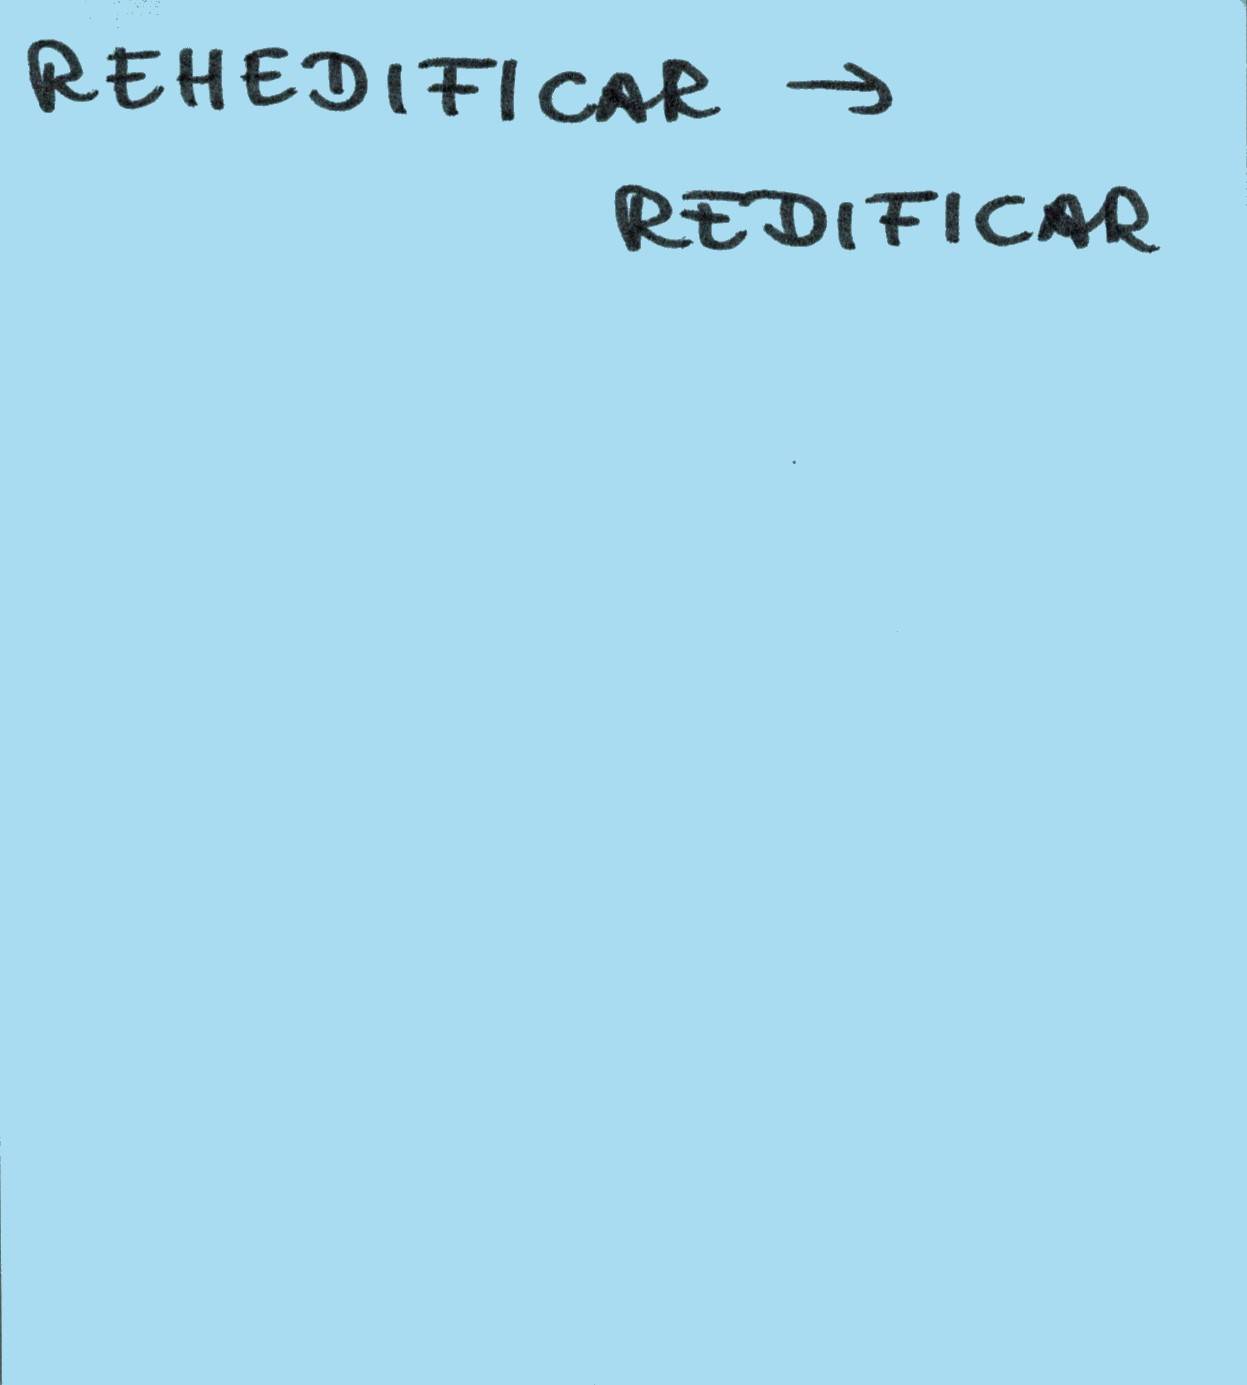 REHEDIFICAR →
REDIFICAR